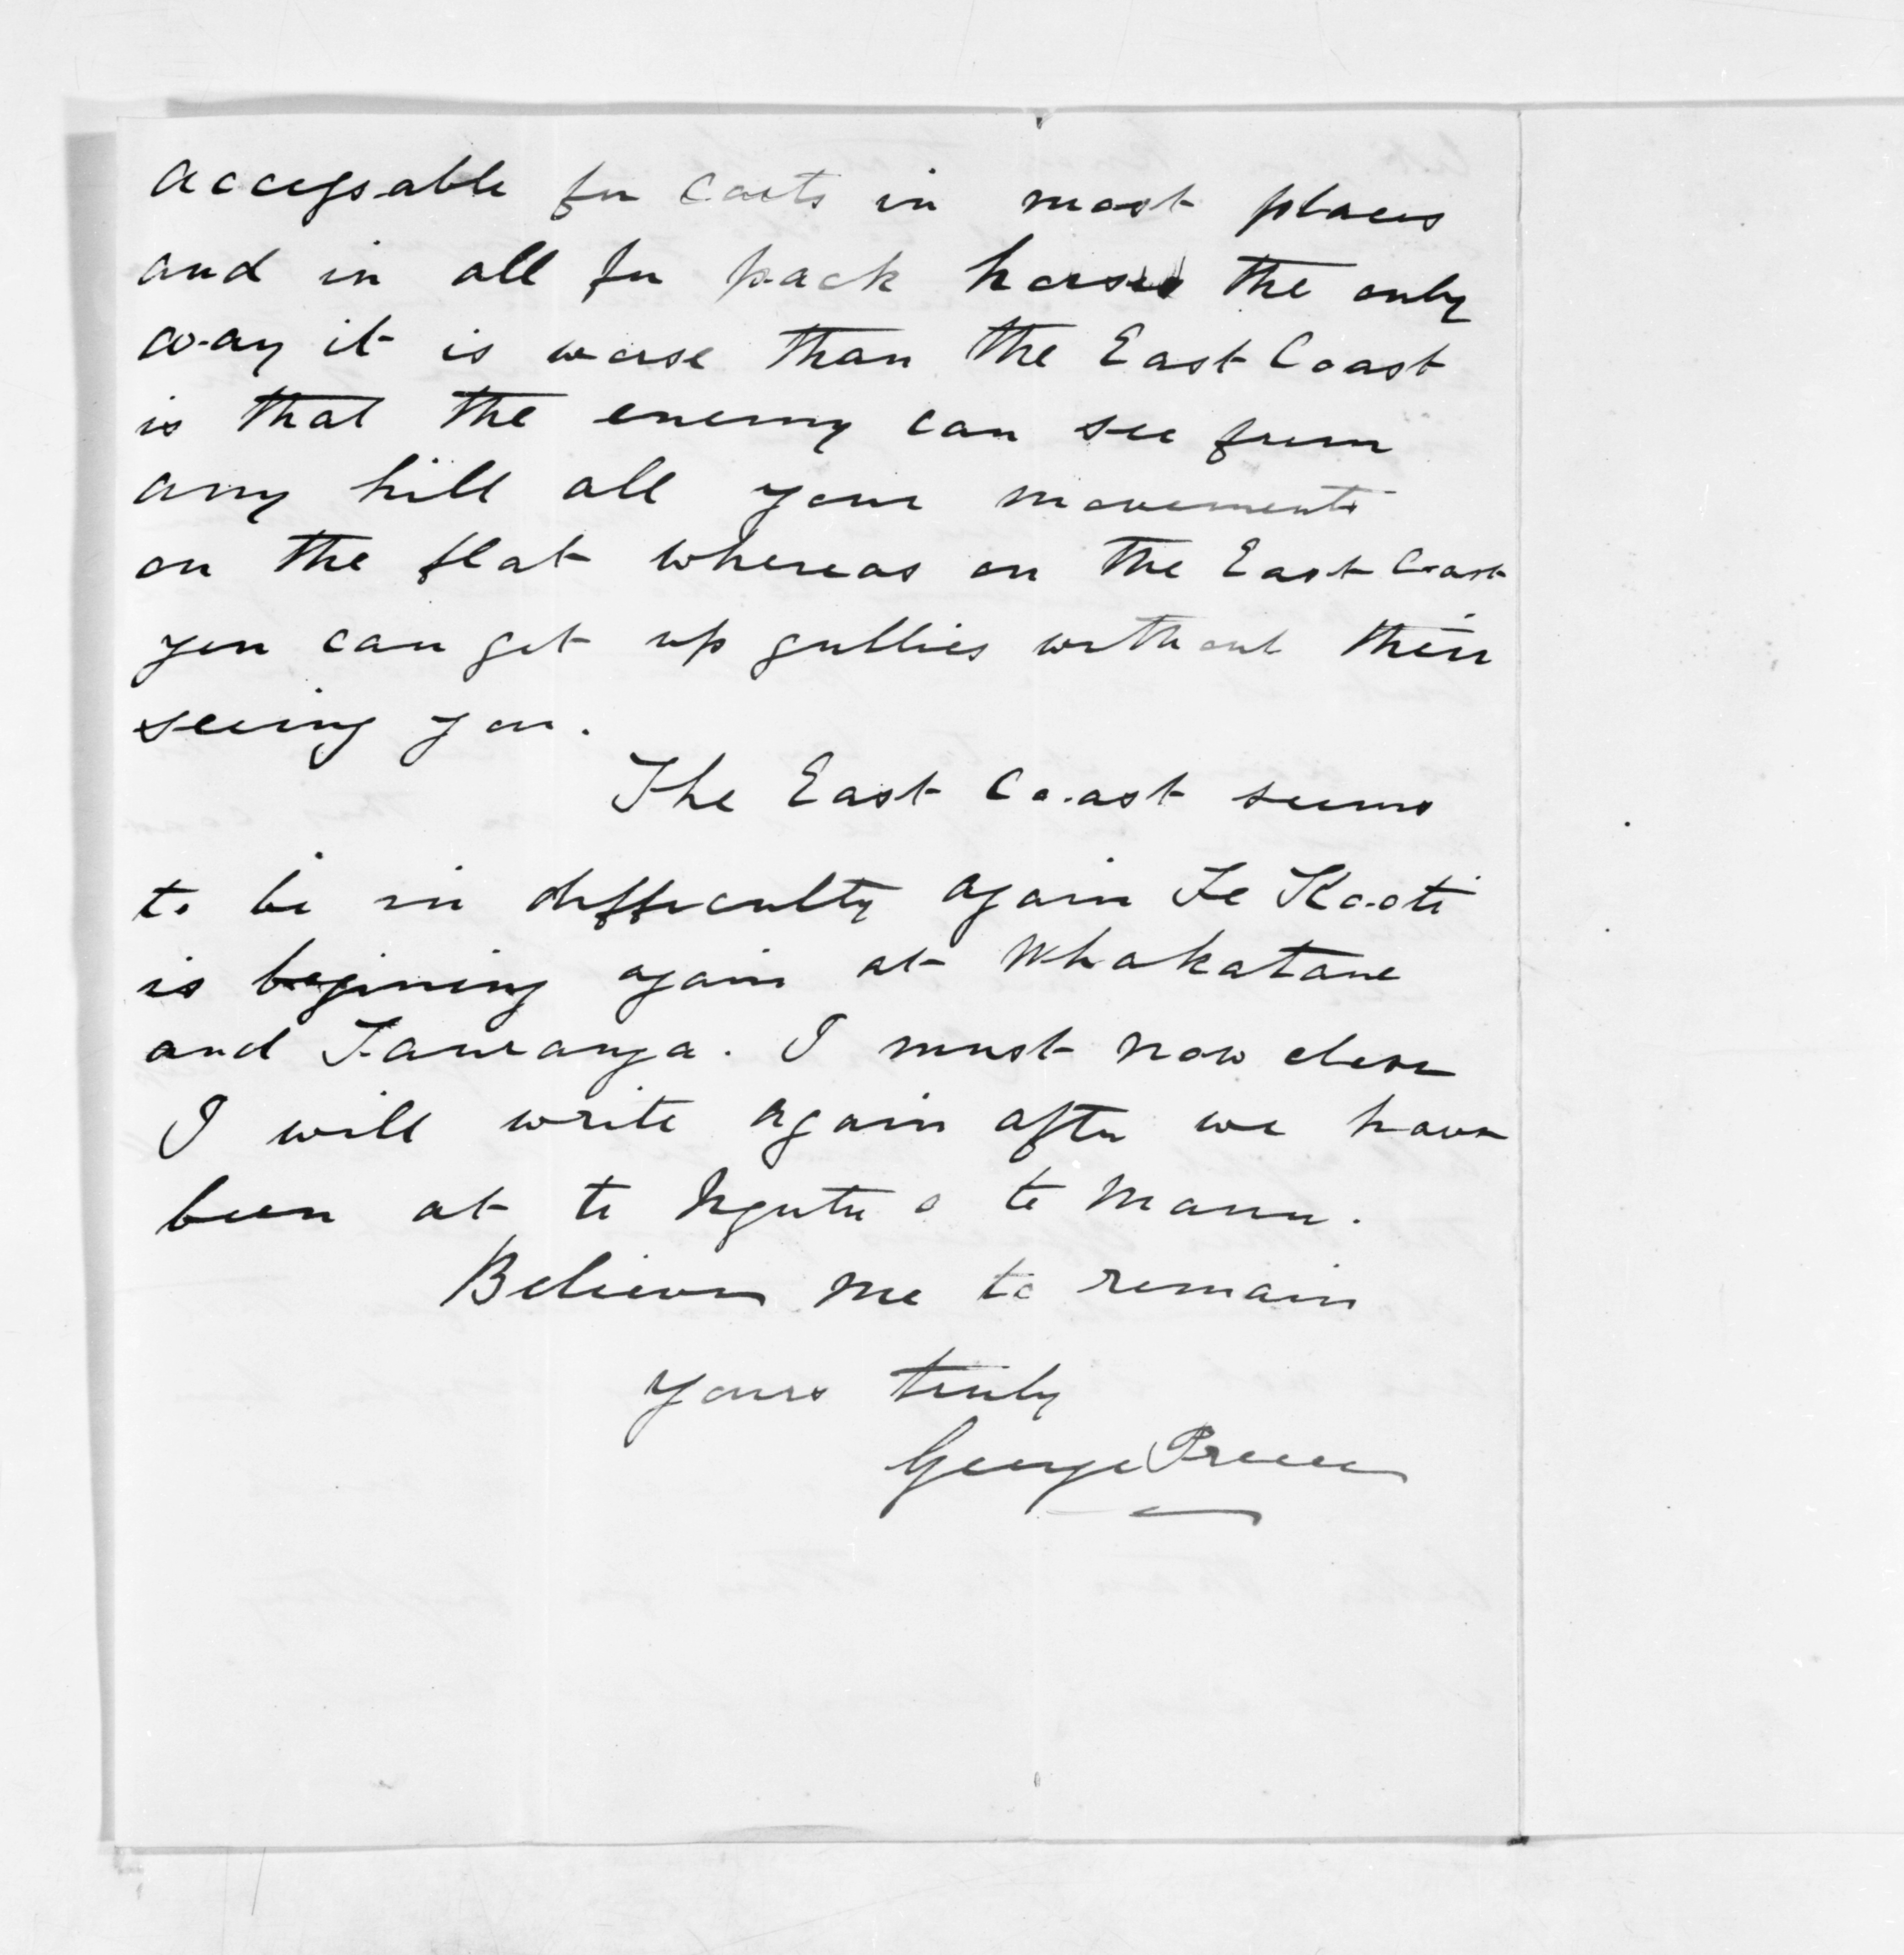 accessable for carts in most places
and in all for pack horses the only
way it is worse than the East Coast
is that the enemy can see from
any hill all your movements
on the flat whereas on the East Coast
you can get up gullies without their
seeing you.
The East Coast seems
to be in difficulty again Te Kooti
is begining again at Whakatane
and Tauranga. I must now close
I will write again after we have
been at te Ngutu o te Manu.
Believe me to remain
yours truly
George Preece